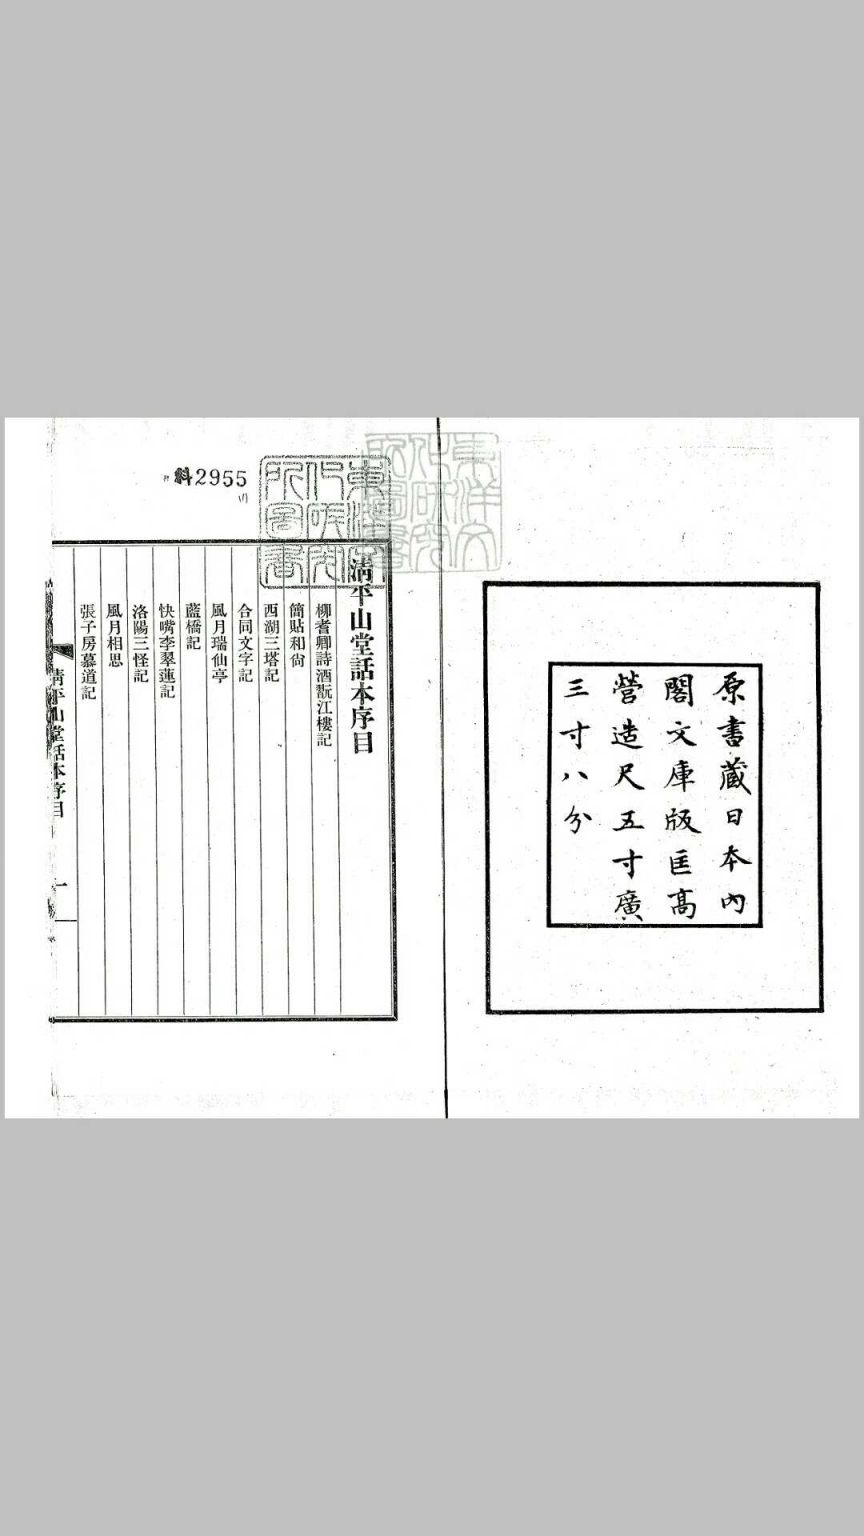 原書藏日本內
閣文庫版匡高
營造尺五寸廣
三寸八分
東洋文化研究所圖書
科2955
清平山堂話本序目
柳耆卿詩酒翫江樓記
簡貼和尙
西湖三塔記
合同文字記
風月瑞仙亭
藍橋記
快嘴李翠蓮記
洛陽三怪記
風月相思
張子房慕道記
清平山堂話本序目
一